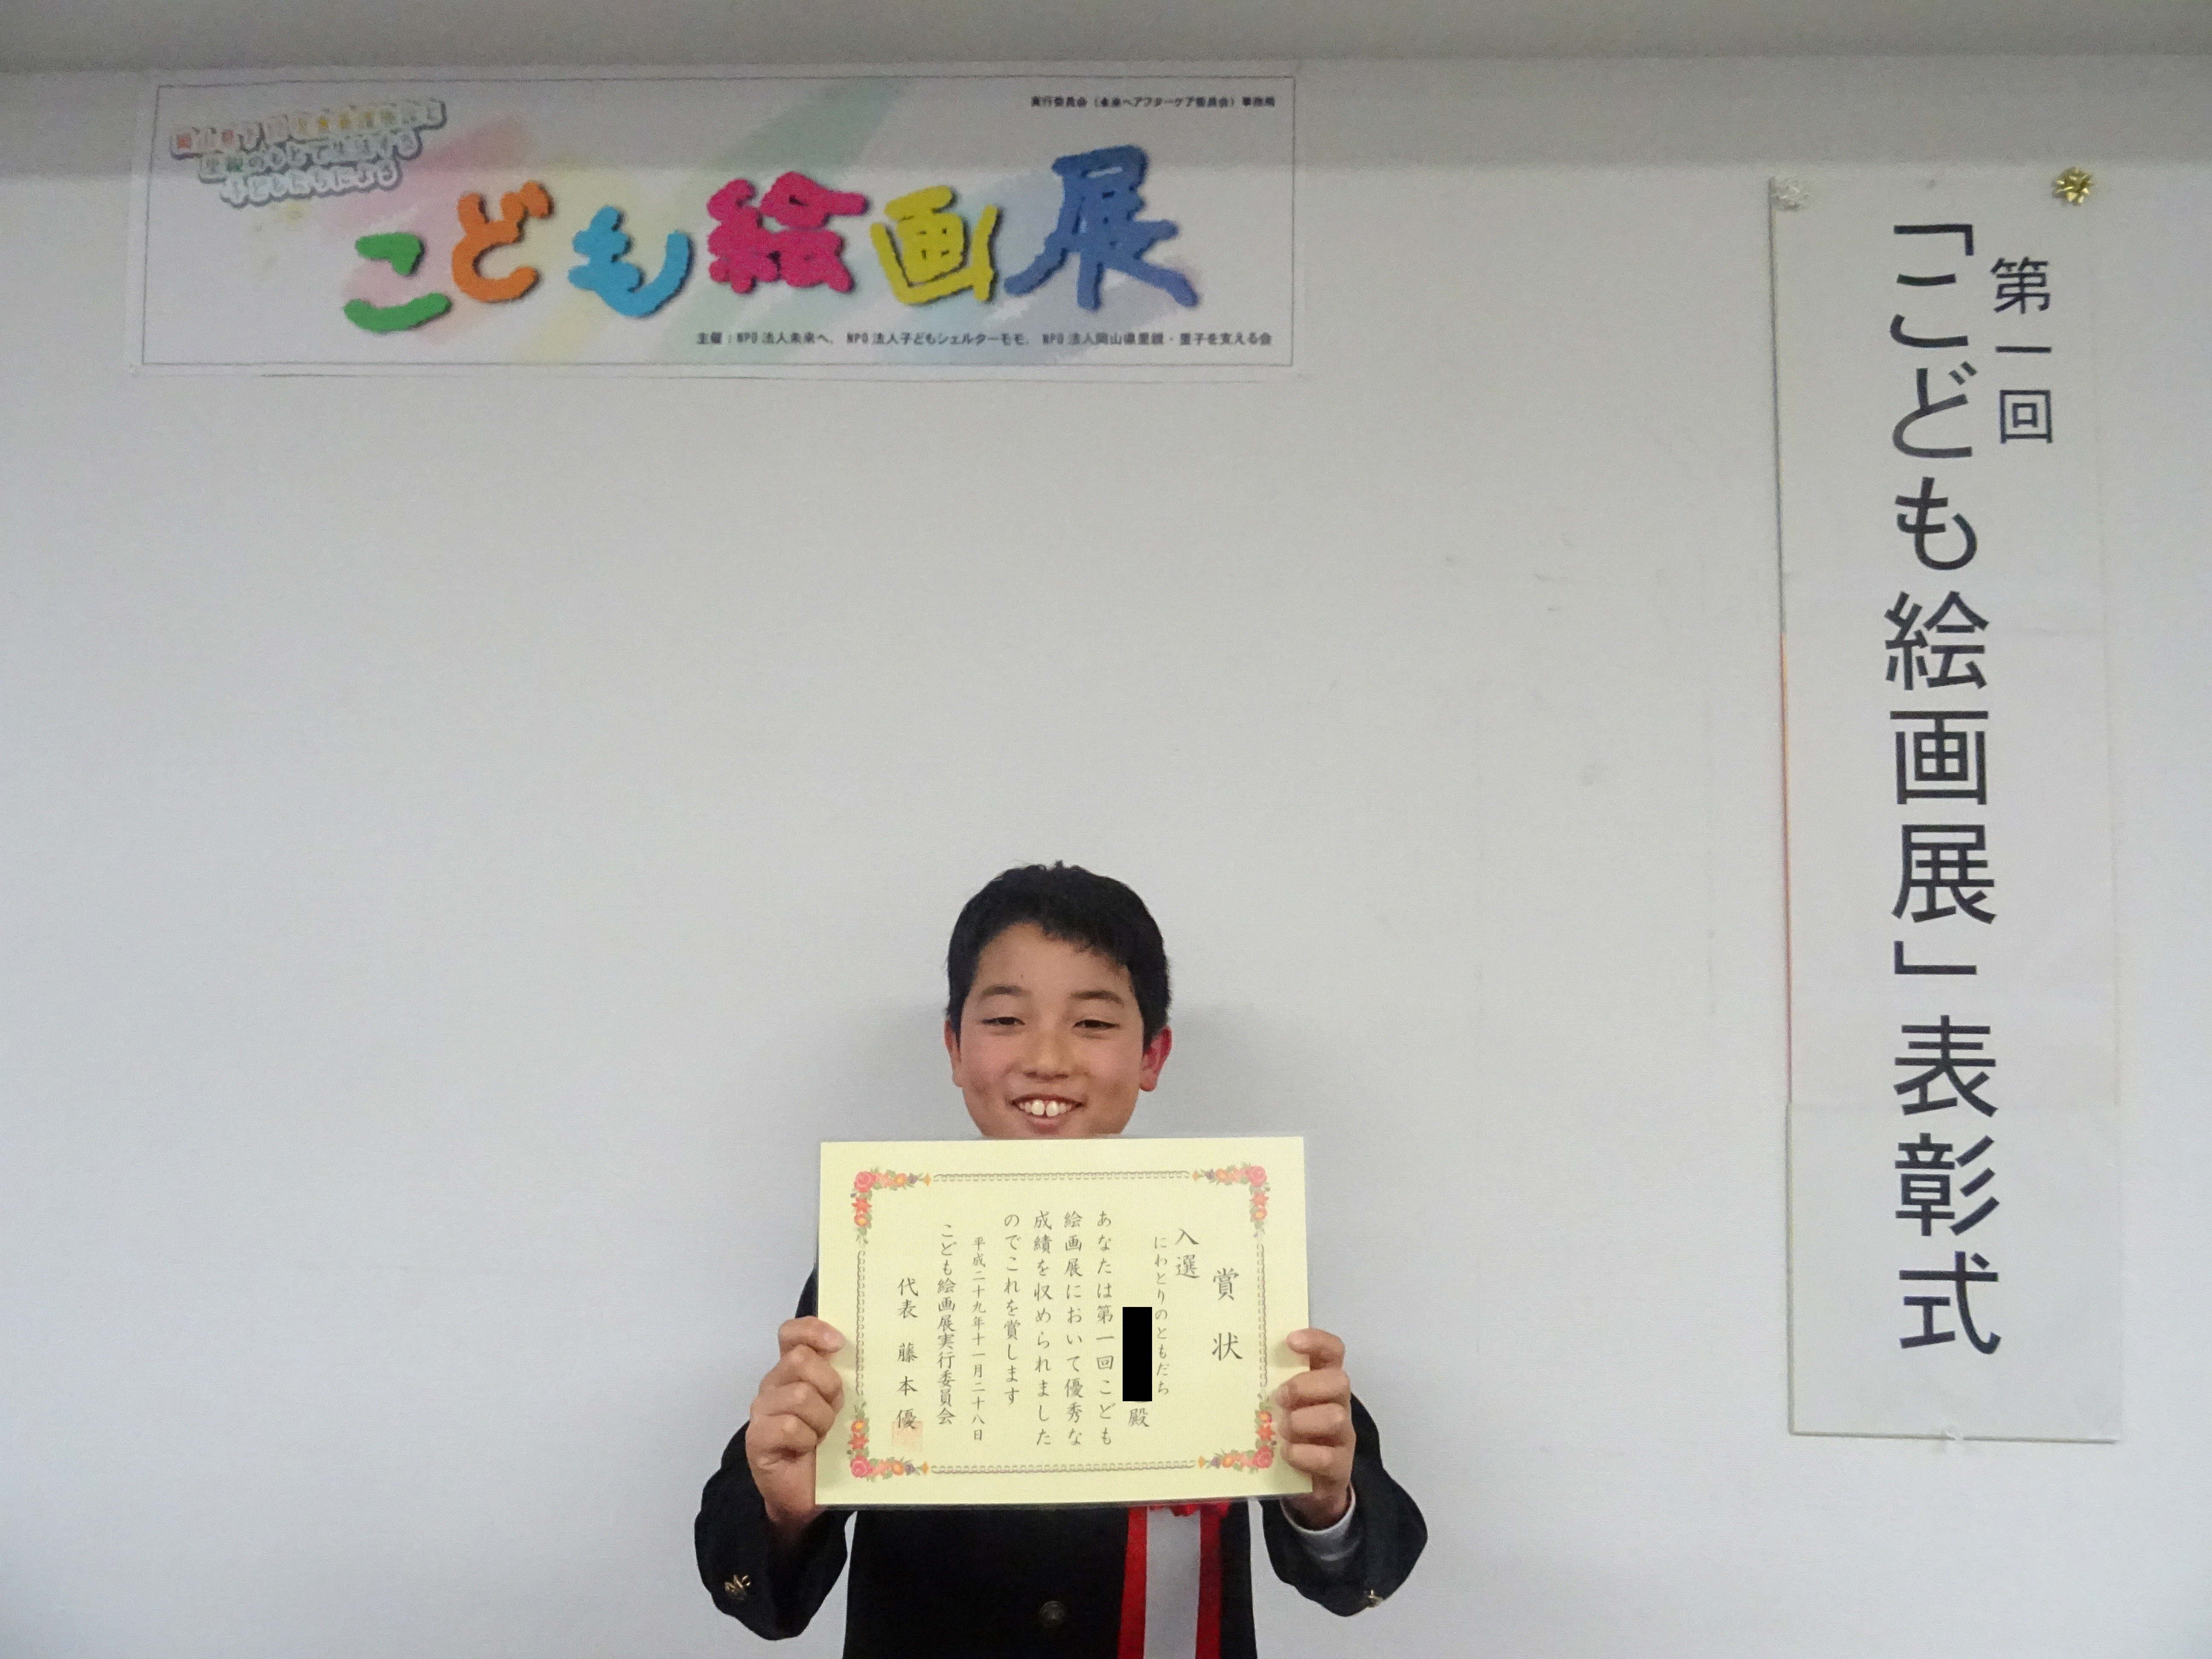 実行委員会(未来へアフターケア委員会)事務局
里親のもとで生活する
子どもたちによる
こども絵画展
主催:NPO法人未来へ、NPO法人子どもシェルターモモ、NPO法人岡山県里親・里子を支える会
第一回
「こども絵画展」表彰式
賞状
入選
にわとりのともだち
殿
あなたは第一回こども
絵画展において優秀な
成績を収められました
のでこれを賞します
平成二十九年十一月二十八日
こども絵画展実行委員会
代表 藤本優